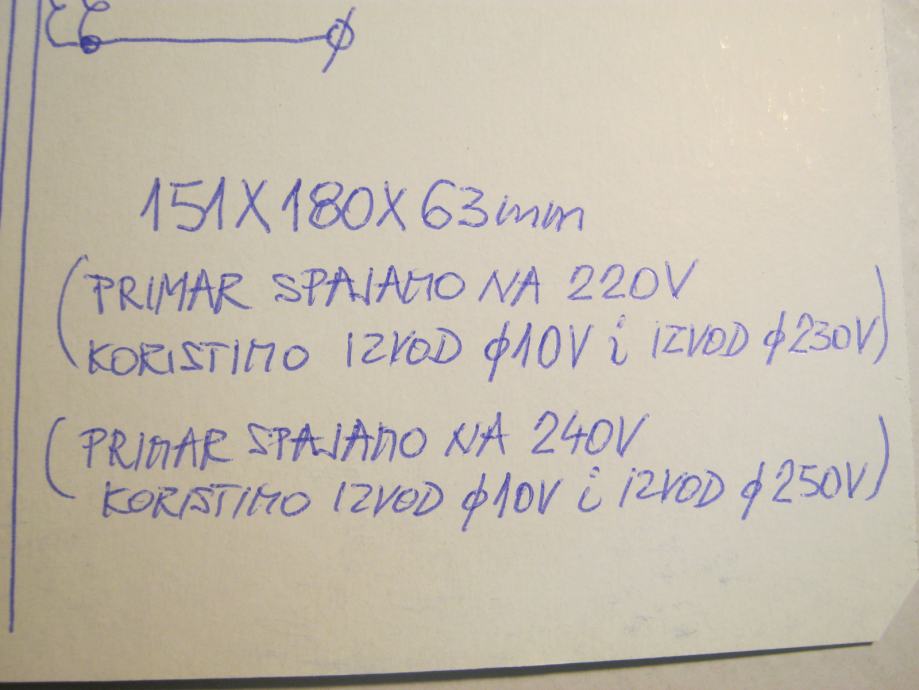 151X180X63mm
(PRIMAR SPAJAMO NA 220V
KORISTIMO IZVOD ϕ10V i IZVOD ϕ230V)
(PRIMAR SPAJAMO NA 240V
KORISTIMO IZVOD ϕ10V i IZVOD ϕ250V)